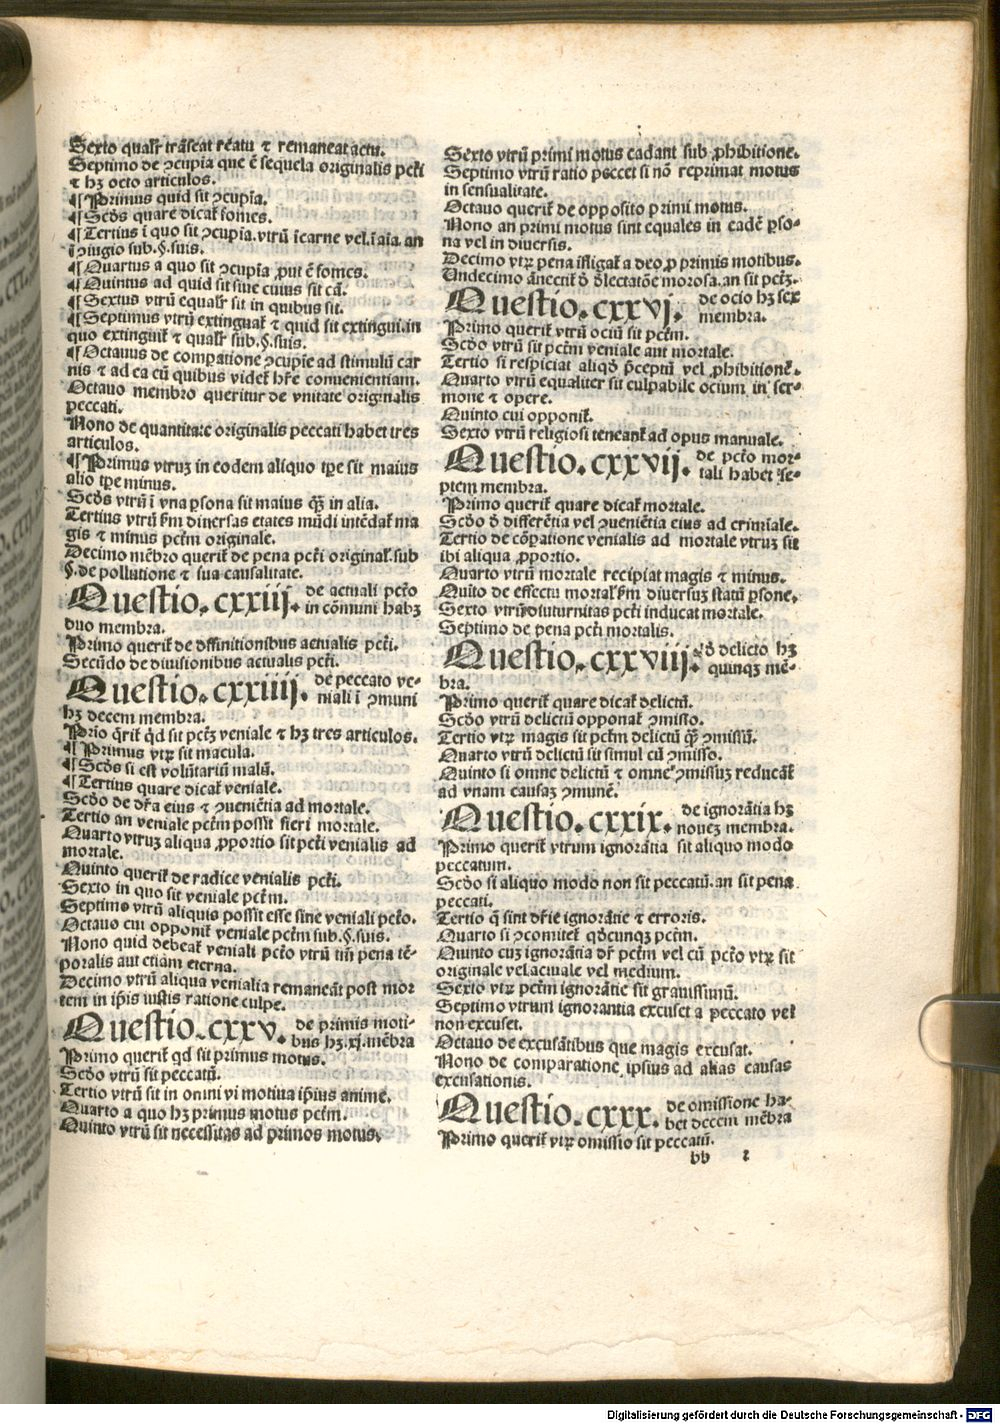 Sexto qualr̄ trāseat reatu ⁊ remaneat actu.
Septimo de ꝯcupīa que ē sequela originalis pcti
⁊ hꝫ octo articulos.
¶ Primus quid sit ꝯcupīa.
¶ Scds quare dicat᷑ fomes.
¶ Tertius ī quo sit ꝯcupīa. vtrū īcarne vel. ī aīa. an
ī ꝯiugio sub. §. suis.
¶ Quartus a quo sit ꝯcupīa ꝓut ē fomes.
¶ Quintus ad quid sit siue cuius sit cā.
¶ Sextus vtrū equalr̄ sit in quibus sit.
¶ Septimus vtrū extinguat᷑ ⁊ quid sit extingui. in
quo extinguit᷑ ⁊ qualr̄ sub. §. suis.
¶ Octauus de compatione ꝯcupīe ad stimulū car
nis ⁊ ad ea cū quibus videt᷑ hr̄e conuenientiam.
Octauo membro queritur de vnitate originalis
peccati.
Nono de quantitate originalis peccati habet tres
articulos.
¶ Primus vtruꝫ in eodem aliquo tp̄e sit maius
alio tp̄e minus.
Scds vtrū ī vna ꝑsona sit maius qꝫ̄ in alia.
Tertius vtrū fm diuersas etates mūdi intēdat᷑ ma
gis ⁊ minus pctm originale.
Decimo mēbro querit᷑ de pena pcti original᷑. sub
§. de pollutione ⁊ sua causalitate.
Questio. cxxiij. de actuali pcto
in cōmuni habꝫ
duo membra.
Primo querit᷑ de diffinitionibus actualis pcti.
Secūdo de diuisionibus actualis pcti.
Questio. cxxiiij. de peccato ve-
niali ī ꝯmuni
hꝫ decem membra.
Prio q̄rit᷑ qd sit pctꝫ veniale ⁊ hꝫ tres articulos.
¶ Primus vtꝝ sit macula.
¶ Scds si est volūtariū malū.
¶ Tertius quare dicat᷑ veniale.
Scdo de dr̄a eius ⁊ ꝯueniētia ad mortale.
Tertio an veniale pctm possit fieri mortale.
Quarto vtruꝫ aliqua ꝓportio sit pcti venialis ad
mortale.
Quinto querit᷑ de radice venialis pcti.
Sexto in quo sit veniale pctm.
Septimo vtrū aliquis possit esse sine veniali pcto.
Octauo cui opponit᷑ veniale pctm sub. §. suis.
Nono quid debeat᷑ veniali pcto vtrū tm̄ pena tē-
poralis aut etiam eterna.
Decimo vtrū aliqua venialia remaneāt post mor
tem in ip̄is iustis ratione culpe.
Questio. cxxv. de primis moti-
bus hꝫ. xj. mēbra
Primo querit᷑ qd sit primus motus.
Scdo vtrū sit peccatū.
Tertio vtrū sit in omni vi motiua ip̄ius anime.
Quarto a quo hꝫ primus motus pctm.
Quinto vtrū sit necessitas ad primos motus.
Sexto vtrū primi motus cadant sub ꝓhibitione.
Septimo vtrū ratio peccet si nō reprimat motus
in sensualitate.
Octauo querit᷑ de opposito primi motus.
Nono an primi motus sint equales in eadē ꝑso-
na vel in diuersis.
Decimo vtꝝ pena īfligat᷑ a deo ꝓ primis motibus.
Undecimo ānectit᷑ d̄ d̄lectatōe morosa. an sit pctꝫ.
Questio. cxxvj. de ocio hꝫ sex
membra.
Primo querit᷑ vtrū ociū sit pctm.
Scdo vtrū sit pctm veniale aut mortale.
Tertio si respiciat aliqd p̄ceptū vel ꝓhibitionē.
Quarto vtrū equaliter sit culpabile ocium in ser-
mone ⁊ opere.
Quinto cui opponit᷑.
Sexto vtrū religiosi teneant᷑ ad opus manuale.
Questio. cxxvij. de pcto mor-
tali habet se-
ptem membra.
Primo querit᷑ quare dicat᷑ mortale.
Scdo d̄ differētia vel ꝯueniētia eius ad criminale.
Tertio de cōꝑatione venialis ad mortale vtruꝫ sit
ibi aliqua ꝓportio.
Quarto vtrū mortale recipiat magis ⁊ minus.
Quīto de effectu mortal᷑ fm diuersuꝫ statū ꝑsone.
Sexto vtrū diuturnitas pcti inducat mortale.
Septimo de pena pcti mortalis.
Questio. cxxviij. d̄ delicto hꝫ
quinqꝫ mē-
bra.
Primo querit᷑ quare dicat᷑ delictū.
Scdo vtrū delictū opponat᷑ ꝯmisso.
Tertio vtꝝ magis sit pctm delictū qꝫ̄ ꝯmissū.
Quarto vtrū delictū sit simul cū ꝯmisso.
Quinto si omne delictū ⁊ omne ꝯmissuꝫ reducāt᷑
ad vnam causaꝫ ꝯmunē.
Questio. cxxix. de ignorātia hꝫ
noueꝫ membra.
Primo querit᷑ vtrum ignorātia sit aliquo modo
peccatum.
Scdo si aliquo modo non sit peccatū. an sit pena
peccati.
Tertio q̄ sint dr̄ie ignorātie ⁊ erroris.
Quarto si ꝯcomitet᷑ qdcunqꝫ pctm.
Quinto cuꝫ ignorātia dr̄ pctm vel cū pcto vtꝝ sit
originale vel actuale vel medium.
Sexto vtꝝ pctm ignorātie sit grauissimū.
Septimo vtrum ignorantia excuset a peccato vel
non excuset.
Octauo de excusātibus que magis excusat.
Nono de comparatione ipsius ad alias causas
excusationis.
Questio. cxxx. de omissione ha-
bet decem mēbra
Primo querit᷑ vtꝝ omissio sit peccatū.
bb 2
Digitalisierung gefördert durch die Deutsche Forschungsgemeinschaft - DFG